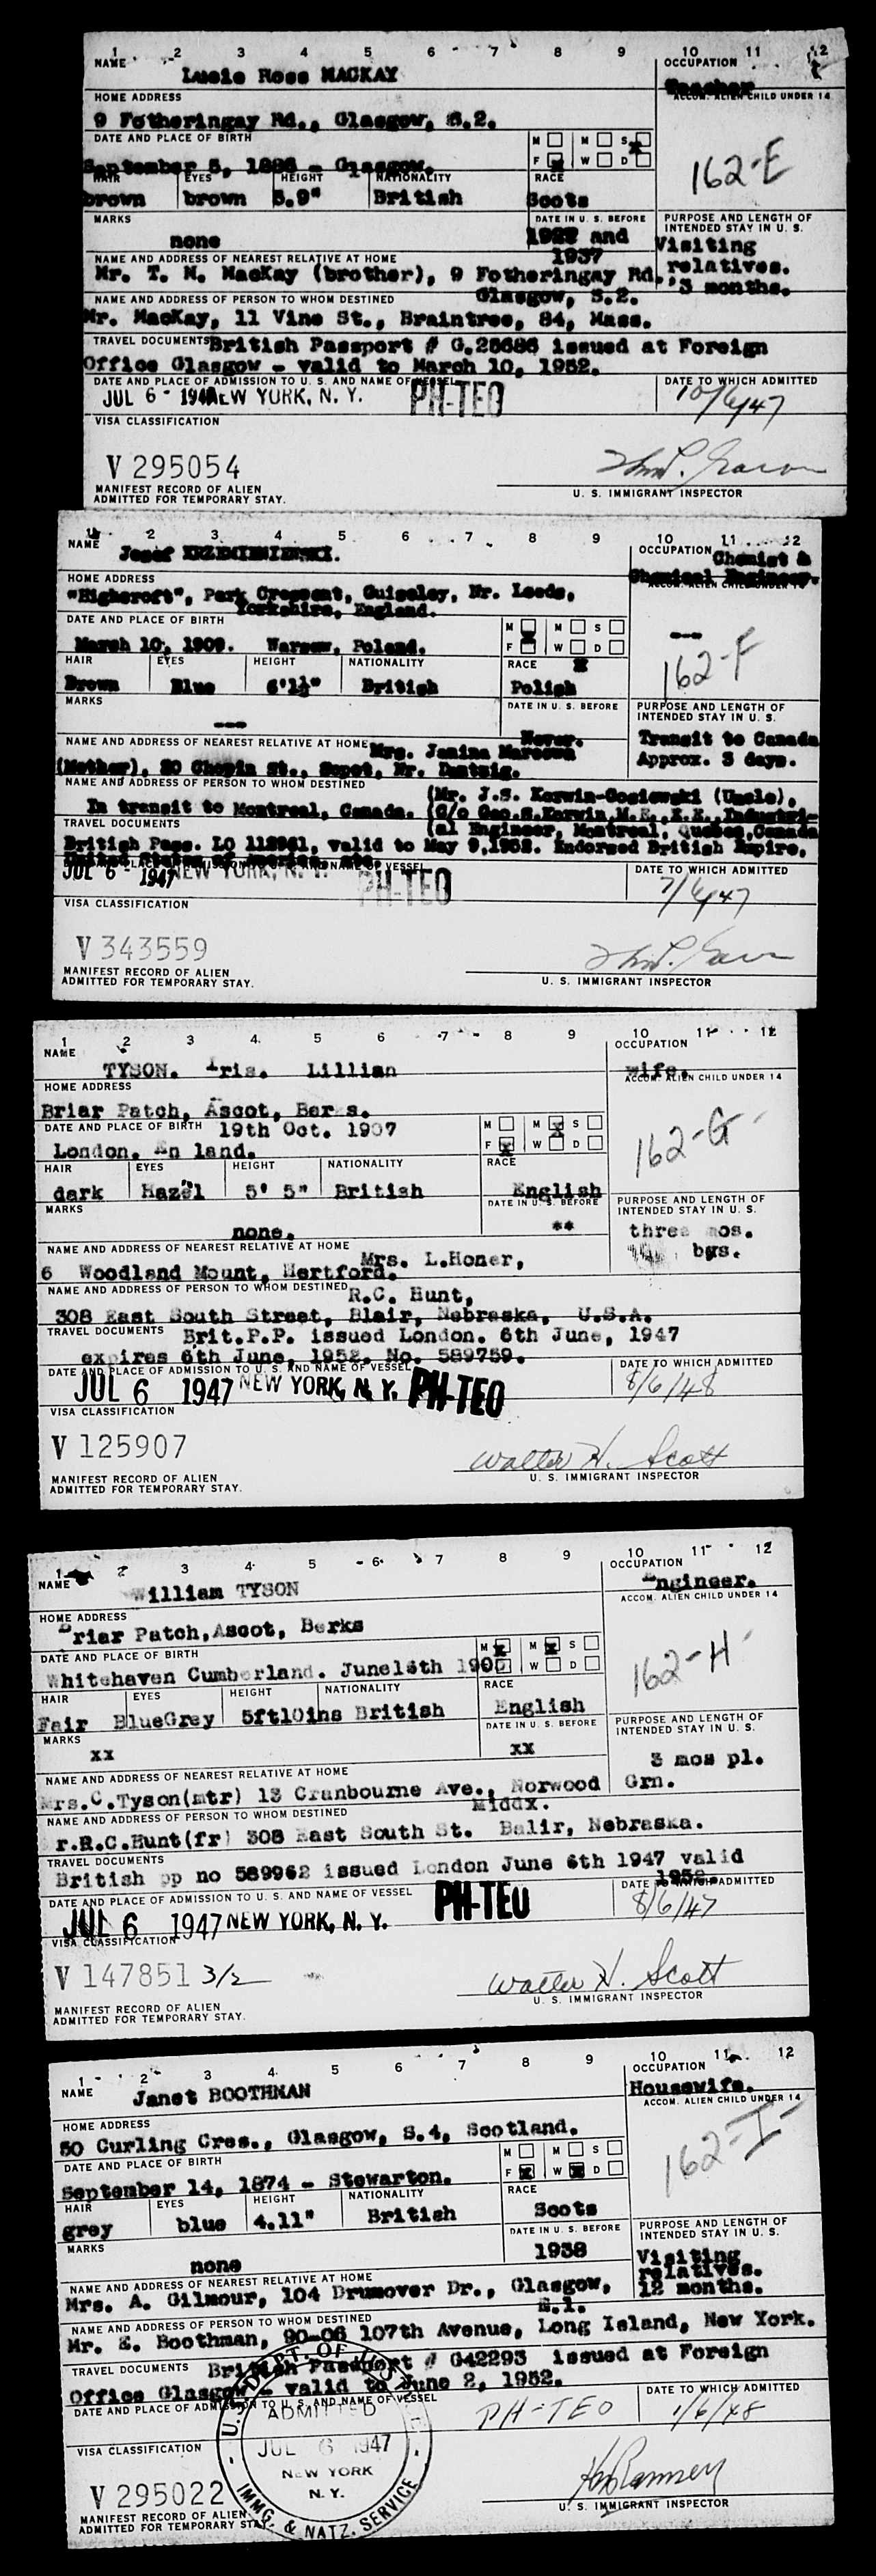 1 2 3 4 5 6 7 8 9 10 11 12
NAME OCCUPATION
Lucie Ross MACKAY Teacher
HOME ADDRESS ACCOM. ALIEN CHILD UNDER 14
9 Fotheringay Rd., Glasgow, S.2.
DATE AND PLACE OF BIRTH M M S
F W D
September 5, - Glasgow. 162-E
HAIR EYES HEIGHT NATIONALITY RACE
brown brown 5.9" British Scots
MARKS DATE IN U. S. BEFORE PURPOSE AND LENGTH OF INTENDED STAY IN U. S.
none and 1937 Visiting relatives. 3 months.
NAME AND ADDRESS OF NEAREST RELATIVE AT HOME
Mr. T. N. MacKay (brother), 9 Fotheringay Rd., Glasgow, S.2.
NAME AND ADDRESS OF PERSON TO WHOM DESTINED
Mr. MacKay, 11 Vine St., Braintree, 84, Mass.
TRAVEL DOCUMENTS British Passport # G.25686 issued at Foreign
Office Glasgow - valid to March 10, 1952.
DATE AND PLACE OF ADMISSION TO U. S. AND NAME OF VESSEL DATE TO WHICH ADMITTED
JUL 6 - NEW YORK, N. Y. PH-TEO 10/6/47
VISA CLASSIFICATION
V 295054
MANIFEST RECORD OF ALIEN
ADMITTED FOR TEMPORARY STAY. U. S. IMMIGRANT INSPECTOR
1 2 3 4 5 6 7 8 9 10 11 12
NAME OCCUPATION Chemist &
Josef Chemical Engineer.
HOME ADDRESS
"Highcroft", Park Crescent, Guiseley, Nr. Leeds,
Yorkshire, England.
DATE AND PLACE OF BIRTH M M S
F W D
March 10, 1909. Warsaw, Poland. 162-F
HAIR EYES HEIGHT NATIONALITY RACE
Brown Blue 6'1½" British Polish
MARKS DATE IN U. S. BEFORE PURPOSE AND LENGTH OF INTENDED STAY IN U. S.
--- Never. Transit to Canada
Approx. 3 days.
NAME AND ADDRESS OF NEAREST RELATIVE AT HOME Mrs. Janina
(Mother), 20 Chopin St., Sopot, Nr. Dantzig.
NAME AND ADDRESS OF PERSON TO WHOM DESTINED (Mr. J.S. Korwin-Gosiewski (Uncle),
In transit to Montreal, Canada. (C/o Geo.S.Korwin,
TRAVEL DOCUMENTS (al Engineer, Montreal, Quebec, Canada
British Pass. LO valid to May 9, Endorsed British Empire,
United States of America,
JUL 6 - 1947 NEW YORK, N. Y. VESSEL PH-TEO DATE TO WHICH ADMITTED
7/6/47
VISA CLASSIFICATION
V 343559
MANIFEST RECORD OF ALIEN
ADMITTED FOR TEMPORARY STAY. U. S. IMMIGRANT INSPECTOR
1 2 3 4 5 6 7 8 9 10 11 12
NAME OCCUPATION
TYSON. Iris. Lillian Wife.
HOME ADDRESS ACCOM. ALIEN CHILD UNDER 14
Briar Patch, Ascot, Ber s.
DATE AND PLACE OF BIRTH 19th Oct. 1907 M M S
London. En land. F W D 162-G
HAIR EYES HEIGHT NATIONALITY RACE
dark Hazel 5' 5" British English
MARKS DATE IN U. S. BEFORE PURPOSE AND LENGTH OF INTENDED STAY IN U. S.
none. ** three mos.
bgs.
NAME AND ADDRESS OF NEAREST RELATIVE AT HOME Mrs. L.Honer,
6 Woodland Mount, Hertford.
NAME AND ADDRESS OF PERSON TO WHOM DESTINED R.C. Hunt,
308 East South Street, Blair, Nebraska, U.S.A.
TRAVEL DOCUMENTS Brit.P.P. issued London. 6th June, 1947
expires 6th June, 1952. No. 589759.
DATE AND PLACE OF ADMISSION TO U. S. AND NAME OF VESSEL DATE TO WHICH ADMITTED
JUL 6 1947 NEW YORK, N. Y. PH-TEO 8/6/48
VISA CLASSIFICATION
V 125907
Walter H. Scott
MANIFEST RECORD OF ALIEN
ADMITTED FOR TEMPORARY STAY. U. S. IMMIGRANT INSPECTOR
1 2 3 4 5 6 7 8 9 10 11 12
NAME OCCUPATION
William TYSON Engineer.
HOME ADDRESS ACCOM. ALIEN CHILD UNDER 14
Briar Patch,Ascot, Berks
DATE AND PLACE OF BIRTH M M S
Whitehaven Cumberland. W D 162-H
HAIR EYES HEIGHT NATIONALITY RACE
Fair BlueGrey 5ft10ins British English
MARKS DATE IN U. S. BEFORE PURPOSE AND LENGTH OF INTENDED STAY IN U. S.
xx xx 3 mos pl.
Grn.
NAME AND ADDRESS OF NEAREST RELATIVE AT HOME
Mrs.C.Tyson(mtr) 13 Cranbourne Ave., Norwood
Middx.
NAME AND ADDRESS OF PERSON TO WHOM DESTINED
r.R.C.Hunt(fr) 308 East South St. Balir, Nebraska.
TRAVEL DOCUMENTS
British pp no 589962 issued London June 6th 1947 valid
1952.
DATE AND PLACE OF ADMISSION TO U. S. AND NAME OF VESSEL DATE TO WHICH ADMITTED
JUL 6 1947 NEW YORK, N. Y. PH-TEO 8/6/47
VISA CLASSIFICATION
V 147851 3/2
Walter H. Scott
MANIFEST RECORD OF ALIEN
ADMITTED FOR TEMPORARY STAY. U. S. IMMIGRANT INSPECTOR
1 2 3 4 5 6 7 8 9 10 11 12
NAME OCCUPATION
Janet BOOTHMAN Housewife.
HOME ADDRESS ACCOM. ALIEN CHILD UNDER 14
50 Curling Cres., Glasgow, S.4, Scotland.
DATE AND PLACE OF BIRTH M M S
F W D
September 14, 1874 - Stewarton. 162-I
HAIR EYES HEIGHT NATIONALITY RACE
grey blue 4.11" British Scots
MARKS DATE IN U. S. BEFORE PURPOSE AND LENGTH OF INTENDED STAY IN U. S.
none 1938 Visiting relatives. 12 months.
NAME AND ADDRESS OF NEAREST RELATIVE AT HOME
Mrs. A. Gilmour, 104 Drumover Dr., Glasgow, E.1.
NAME AND ADDRESS OF PERSON TO WHOM DESTINED
Mr. E. Boothman, 90-06 107th Avenue, Long Island, New York.
TRAVEL DOCUMENTS British Passport # G42293 issued at Foreign
Office Glasgow - valid to June 2, 1952.
DATE AND PLACE OF ADMISSION TO U. S. AND NAME OF VESSEL DATE TO WHICH ADMITTED
PH-TEO 1/6/48
U. S. DEPT. OF
ADMITTED
JUL 6 1947
NEW YORK
N. Y.
IMMG. & NATZ. SERVICE
VISA CLASSIFICATION
V 295022
MANIFEST RECORD OF ALIEN
ADMITTED FOR TEMPORARY STAY. U. S. IMMIGRANT INSPECTOR